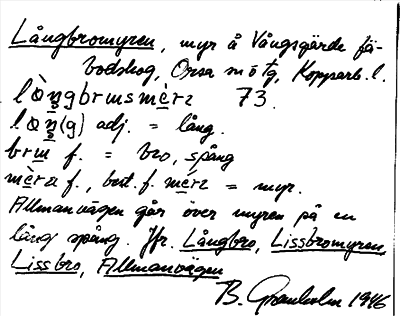 Långbromyren, myr å Vångsgärde fä-
bodskog, Orsa s m ö tg, Kopparb. l.
lòŋgbrɯsmèrɪ 73.
lɷŋ(g) adj. = lång.
brɯ f. = bro, spång
mèra f., best. f. mérɪ = myr.
Allmanvägen går över myren på en
lång spång. Jfr. Långbro, Lissbromyren,
Lissbro, Allmanvägen
B. Granholm 1946